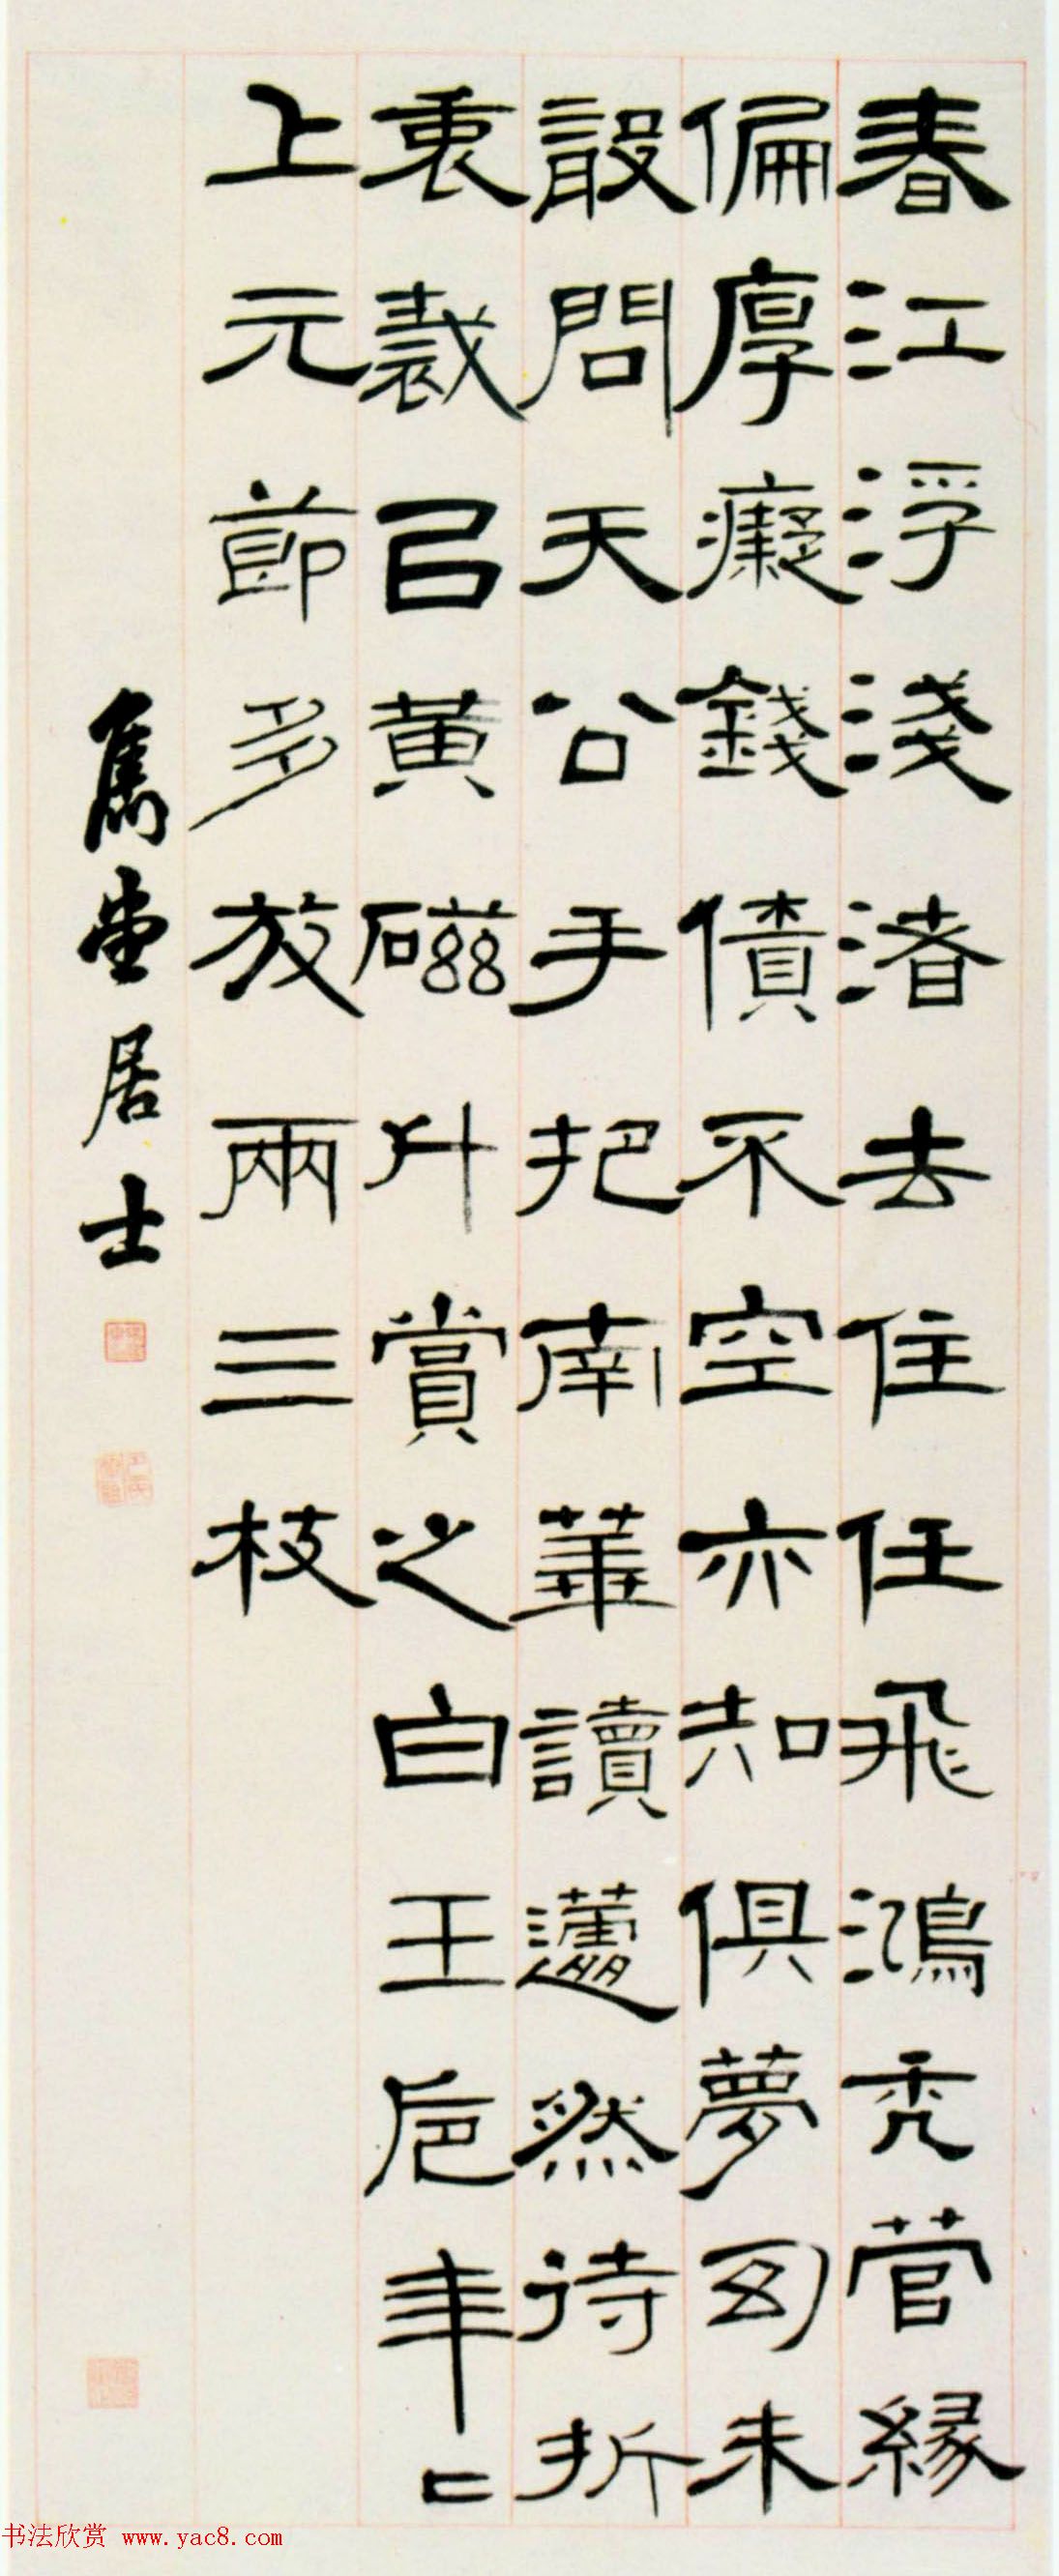 春江浮淺渚去住任飛鴻禿管緣
偏厚癡錢債不空亦知俱夢幻未
設問天公手把南華讀蘧然待折
衷裁㠯黃磁斗賞之白玉卮年〻
上元節多放兩三枝
雋堂居士
书法欣赏 www.yac8.com